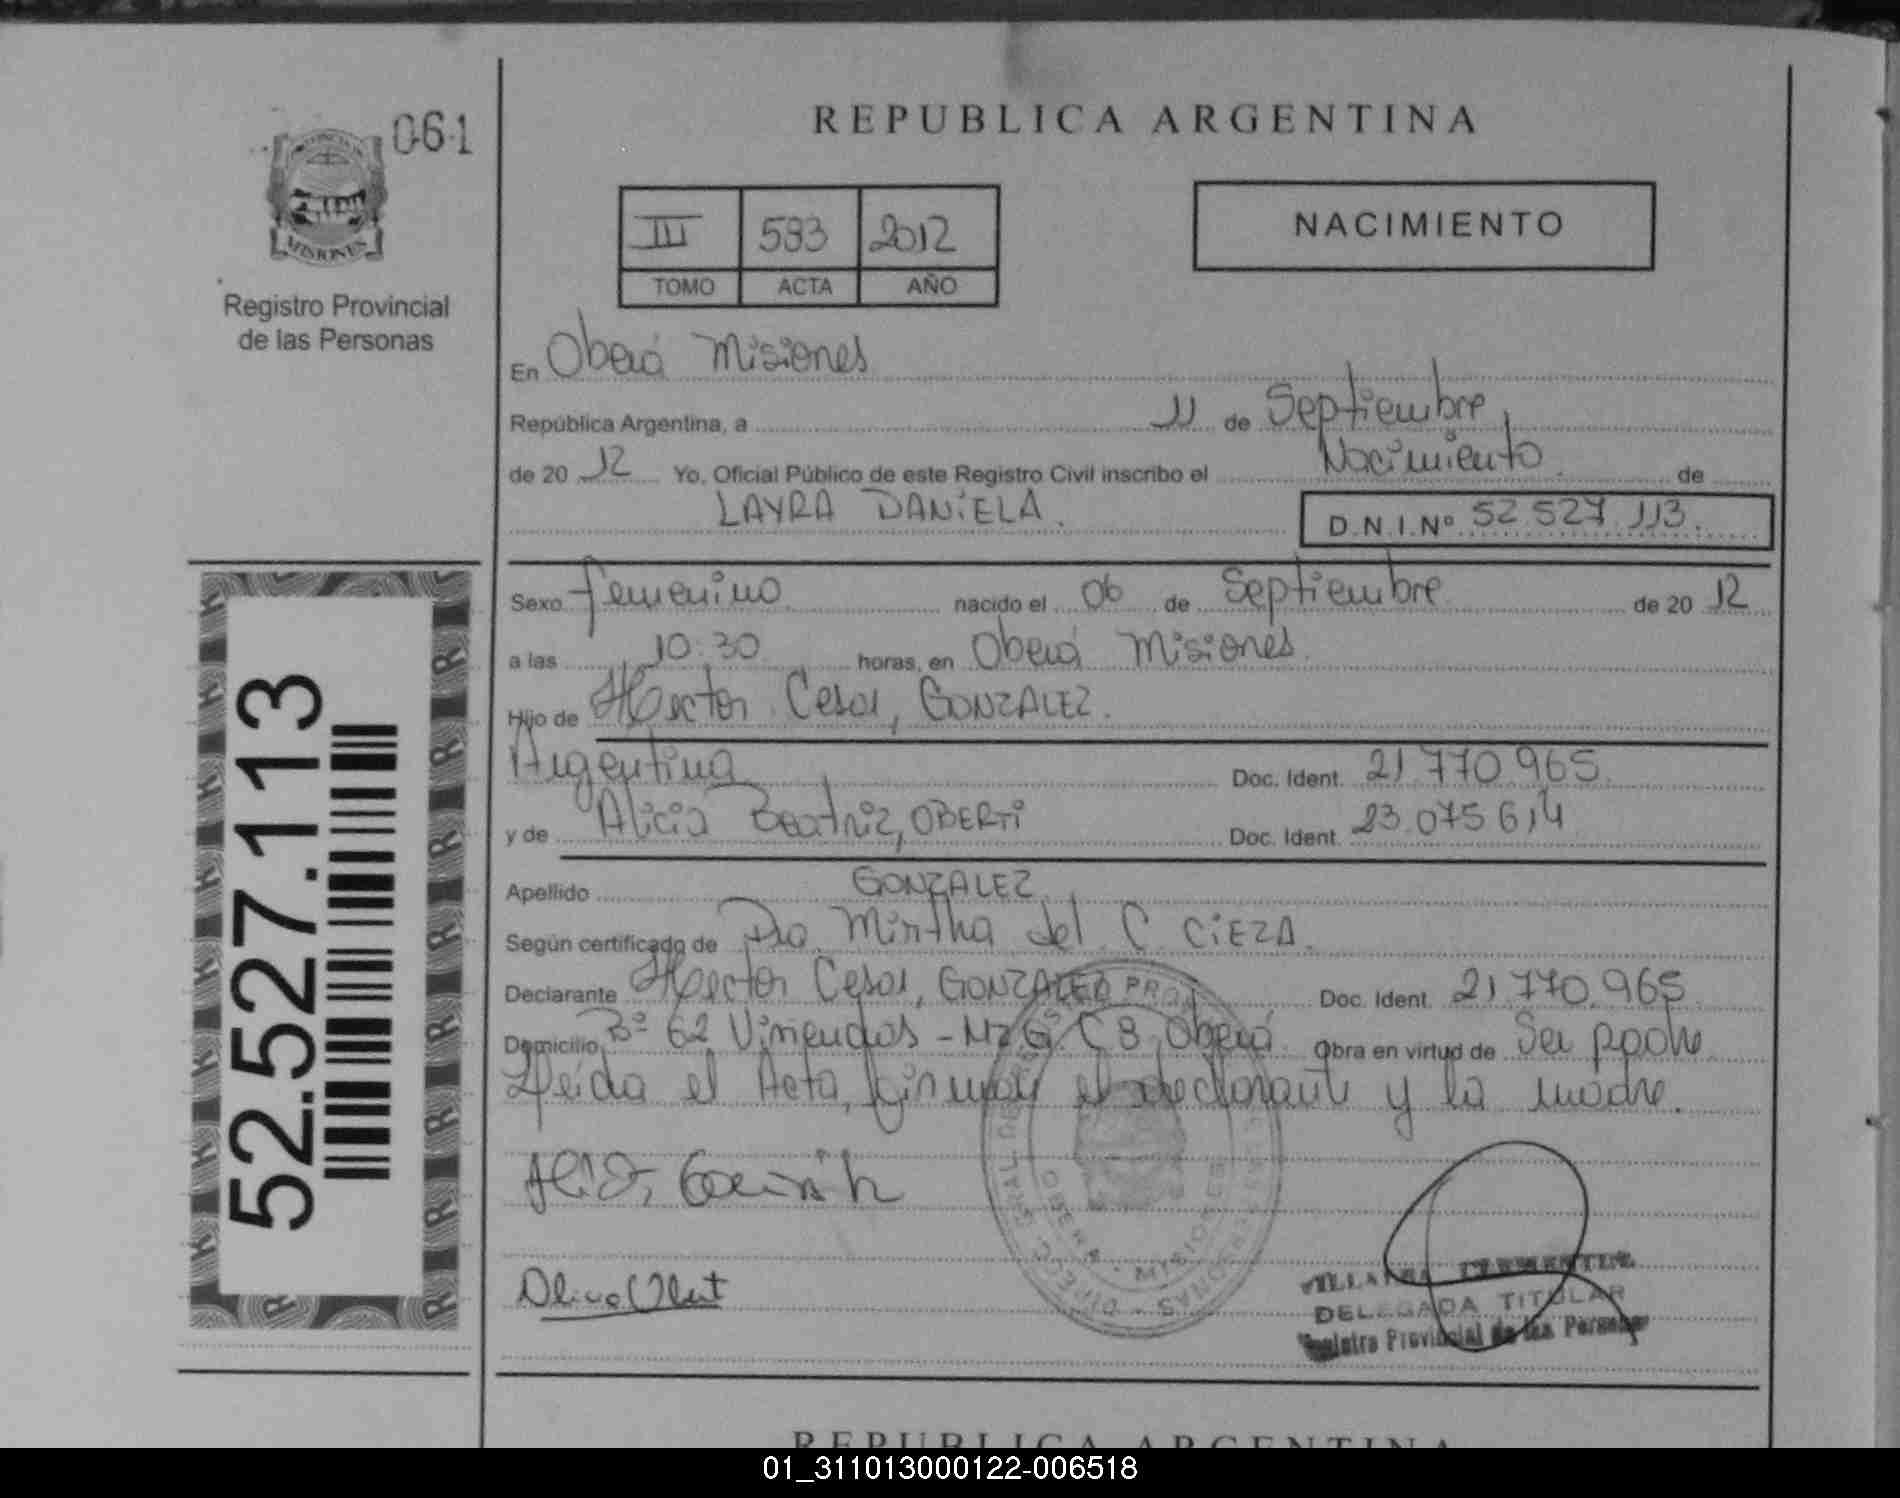 061
REPUBLICA ARGENTINA
MISIONES
Registro Provincial
de las Personas
III 593 2012
TOMO ACTA AÑO
NACIMIENTO
En Oberá Misiones
República Argentina, a 11 de Septiembre
de 20 12 Yo, Oficial Público de este Registro Civil inscribo el Nacimiento de
LAYRA DANiELA. D.N.I.Nº 52 527 113.
Sexo femenino nacido el 06 de Septiembre de 20 12
a las 10:30 horas, en Oberá Misiones.
Hijo de Hector Cesar, GONZALEZ.
Argentina Doc. Ident. 21.770.965.
y de Alicia Beatriz, OBERTi Doc. Ident. 23.075.614
Apellido GONZALEZ
Según certificado de Dra. Mirtha del C. CiEZA.
Declarante Hector Cesar, GONZALEZ Doc. Ident. 21.770.965
Domicilio Bº 62 Viviendas - Mz G C 8 Oberá Obra en virtud de Ser padre
Leída el Acta, firman el declarante y la madre.
52.527.113
OBERA - MISIONES
DELEGADA TITULAR
Registro Provincial de las Personas
REPUBLICA ARGENTINA
01_311013000122-006518